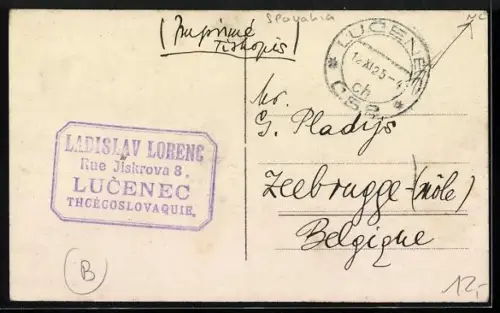 Slovakia
(Imprimé
Tiskopis)
LUČENEC
12.XI.25-4
ch
* Č.S.R. *
LADISLAV LORENC
Rue Jiskrova 8.
LUČENEC
THCÉCOSLOVAQUIE.
G. Pladys
Zeebrugge-(Môle)
Belgique
B
12,-